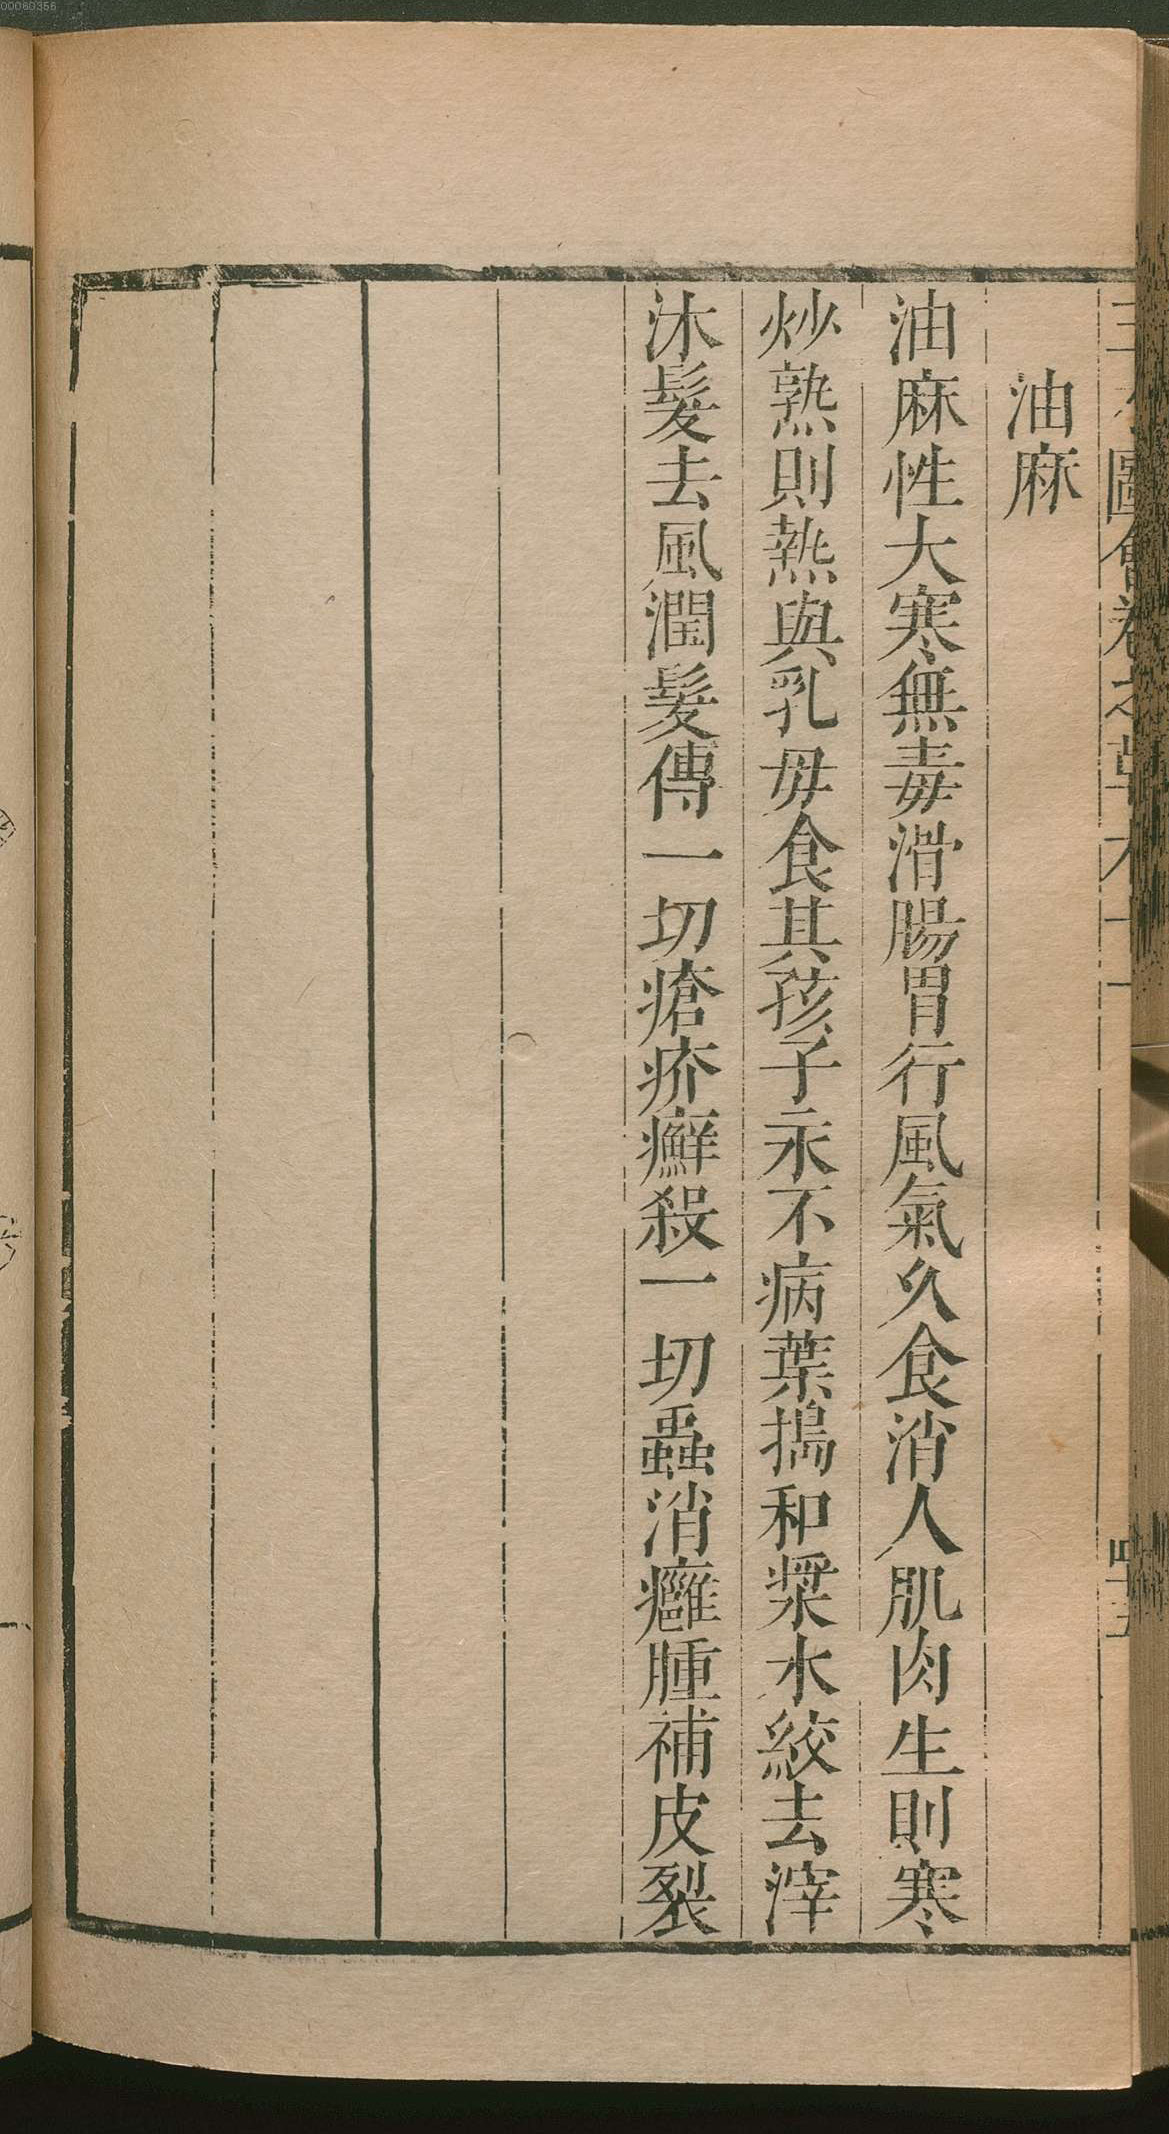 油麻
油麻性大寒無毒滑腸胃行風氣久食消人肌肉生則寒
炒熟則熱與乳母食其孩子永不病葉搗和漿水絞去滓
沐髮去風潤髮傅一切瘡疥癬殺一切蟲消癰腫補皮裂
00060356